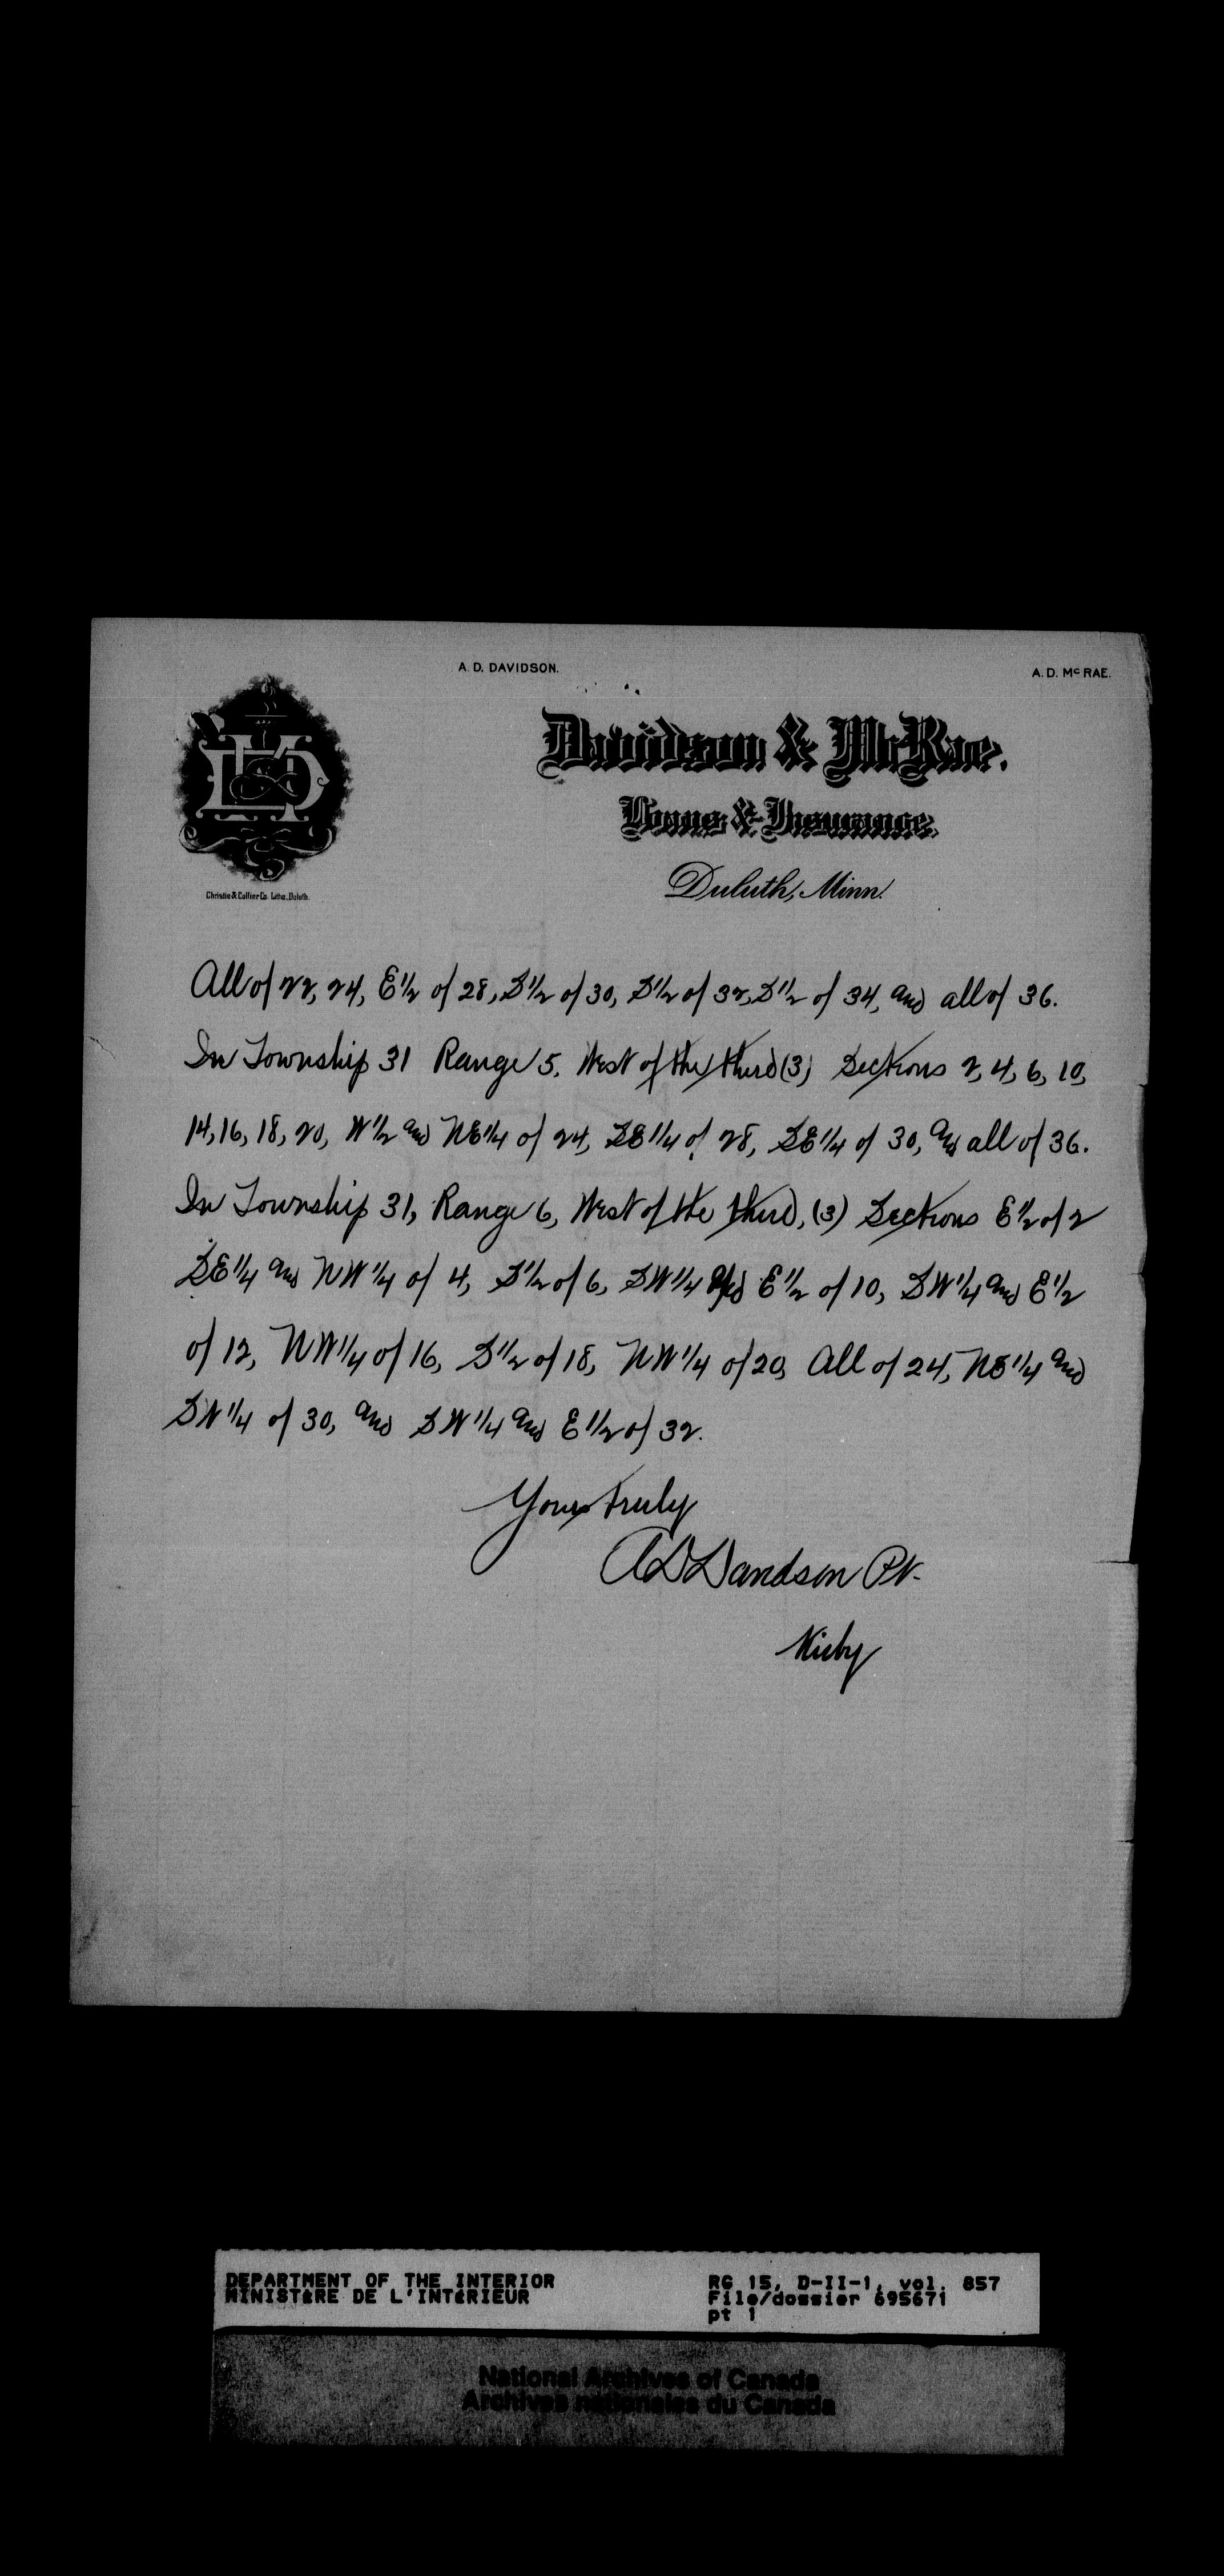 A. D. DAVIDSON.
A. D. McRAE.
Davidson & McRae.
Loans & Insurance.
Duluth, Minn.
Christie & Collier Co. Litho., Duluth.
All of 22, 24, E 1/2 of 28, S 1/2 of 30, S 1/2 of 32, S 1/2 of 34, and all of 36.
In Township 31 Range 5, West of the third (3) Sections 2, 4, 6, 10,
14, 16, 18, 20, W 1/2 and NE 1/4 of 24, SE 1/4 of 28, SE 1/4 of 30, and all of 36.
In Township 31, Range 6, West of the third, (3) Sections E 1/2 of 2
SE 1/4 and NW 1/4 of 4, S 1/2 of 6, SW 1/4 and E 1/2 of 10, SW 1/4 and E 1/2
of 12, NW 1/4 of 16, S 1/2 of 18, NW 1/4 of 20, All of 24, NE 1/4 and
SW 1/4 of 30, and SW 1/4 and E 1/2 of 32.
Yours truly
A D Davidson
DEPARTMENT OF THE INTERIOR
MINISTÈRE DE L'INTÉRIEUR
RG 15, D-II-1, vol. 857
File/dossier 695671
pt 1
National Archives of Canada
Archives nationales du Canada